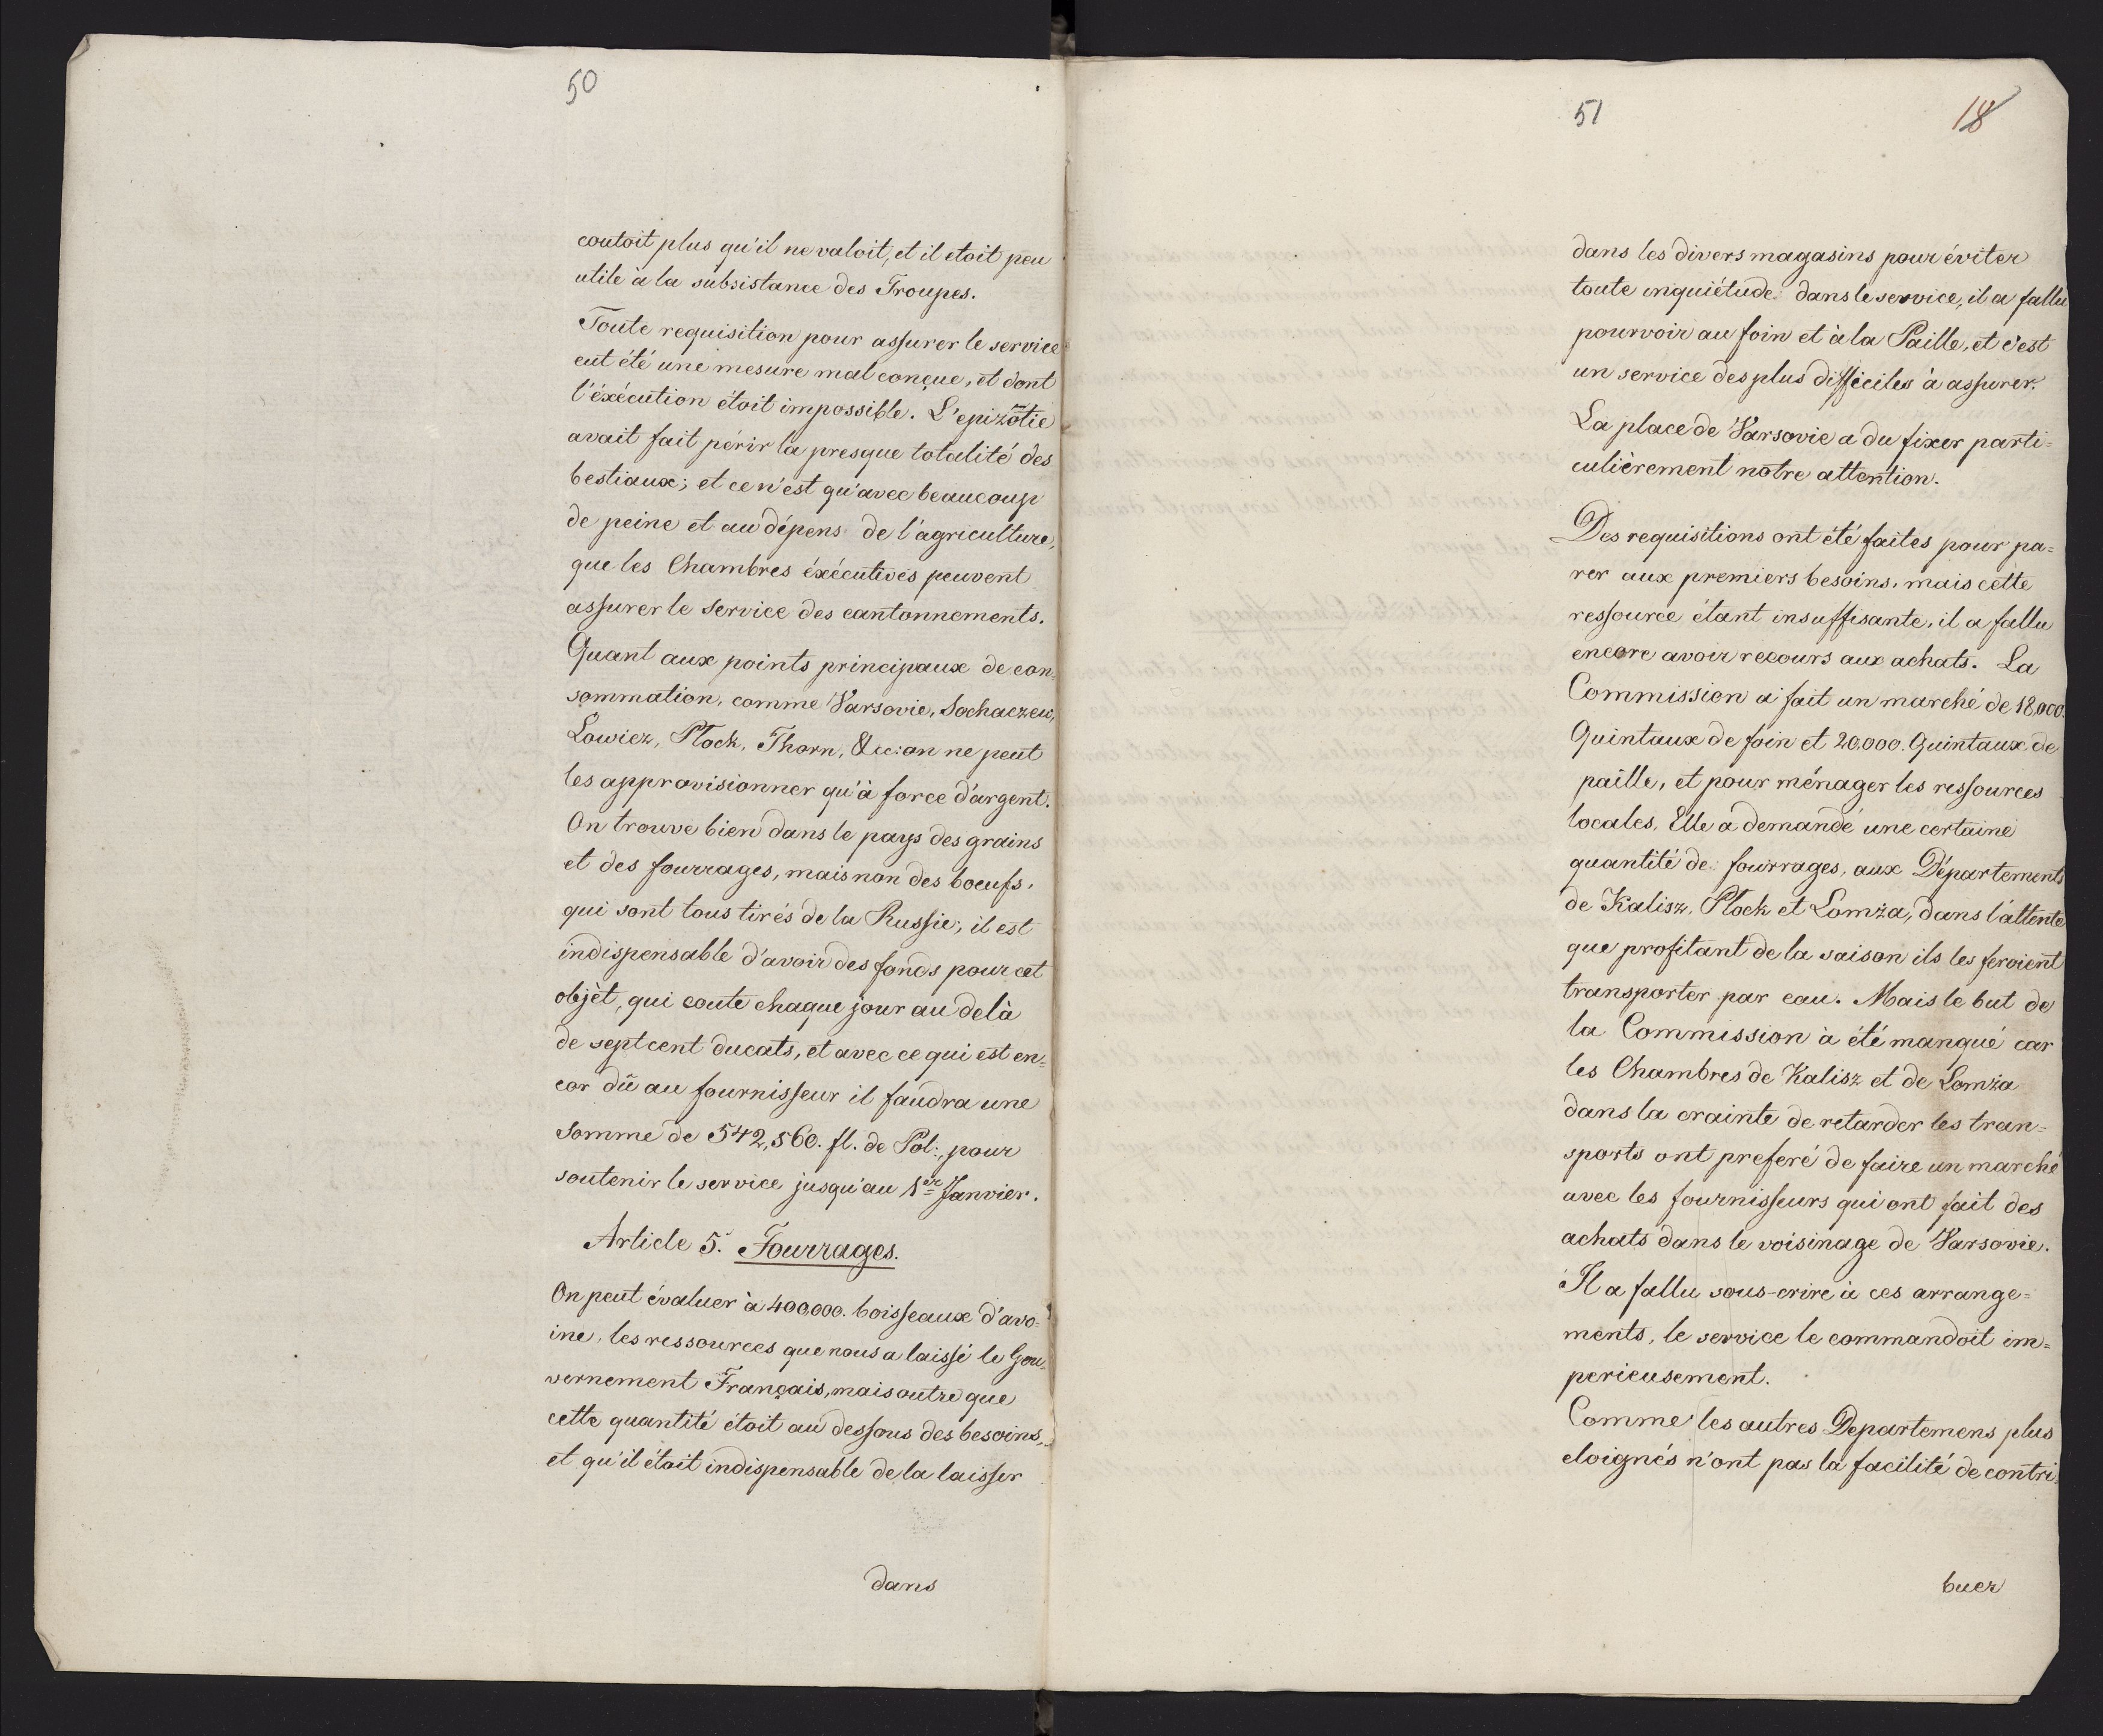 50
coutoit plus qu'il ne valoit, et il etoit peu
utile à la subsistance des Troupes.
Toute requisition pour assurer le service
eut été une mesure mal conçue, et dont
l'éxécution étoit impossible. L'epizōtie
avait fait périr la presque totalité des
bestiaux; et ce n'est qu'avec beaucoup
de peine et au dépens de l'agriculture,
que les Chambres éxécutives peuvent
assurer le service des cantonnements.
Quant aux points principaux de con=
sommation, comme Varsovie, Sochaczew,
Lowicz, Plock, Thorn, &cc: on ne peut
les approvisionner qu'à force d'argent.
On trouve bien dans le pays des grains
et des fourrages, mais non des boeufs,
qui sont tous tirés de la Russie; il est
indispensable d'avoir des fonds pour cet
objèt, qui coute chaque jour au delà
de sept cent ducats, et avec ce qui est en=
cor dû au fournisseur il faudra une
somme de 542,560. fl. de Pol:, pour
soutenir le service jusqu'au 1er Janvier.
Article 5. Fourrages.
On peut évaluer à 400.000. boisseaux d'avo=
ine, les ressources que nous a laissé le Gou=
vernement Français, mais outre que
cette quantité étoit au dessous des besoins,
et qu'il étoit indispensable de la laisser
dans
51
18
dans les divers magasins pour éviter
toute inquiétude dans le service, il a fallu
pourvoir au foin et à la Paille, et c'est
un service des plus difficiles à assurer.
La place de Varsovie a du fixer parti=
culièrement notre attention.
Des requisitions ont été faites pour pa=
rer aux premiers besoins, mais cette
ressource étant insuffisante, il a fallu
encore avoir recours aux achats. La
Commission a fait un marché de 18,000.
Quintaux de foin et 20.000. Quintaux de
paille, et pour ménager les ressources
locales, Elle a demandé une certaine
quantité de fourrages, aux Départements
de Kalisz, Plock et Lomża, dans l'attente
que profitant de la saison ils les feroient
transporter par eau. Mais le but de
la Commission à été manqué car
les Chambres de Kalisz et de Lomża
dans la crainte de retarder les tran=
sports ont preferé de faire un marché
avec les fournisseurs qui ont fait des
achats dans le voisinage de Varsovie.
Il a fallu sous-crire à ces arrange=
ments, le service le commandoit im=
perieusement.
Comme les autres Departemens plus
eloignés n'ont pas la facilité de contri=
buer